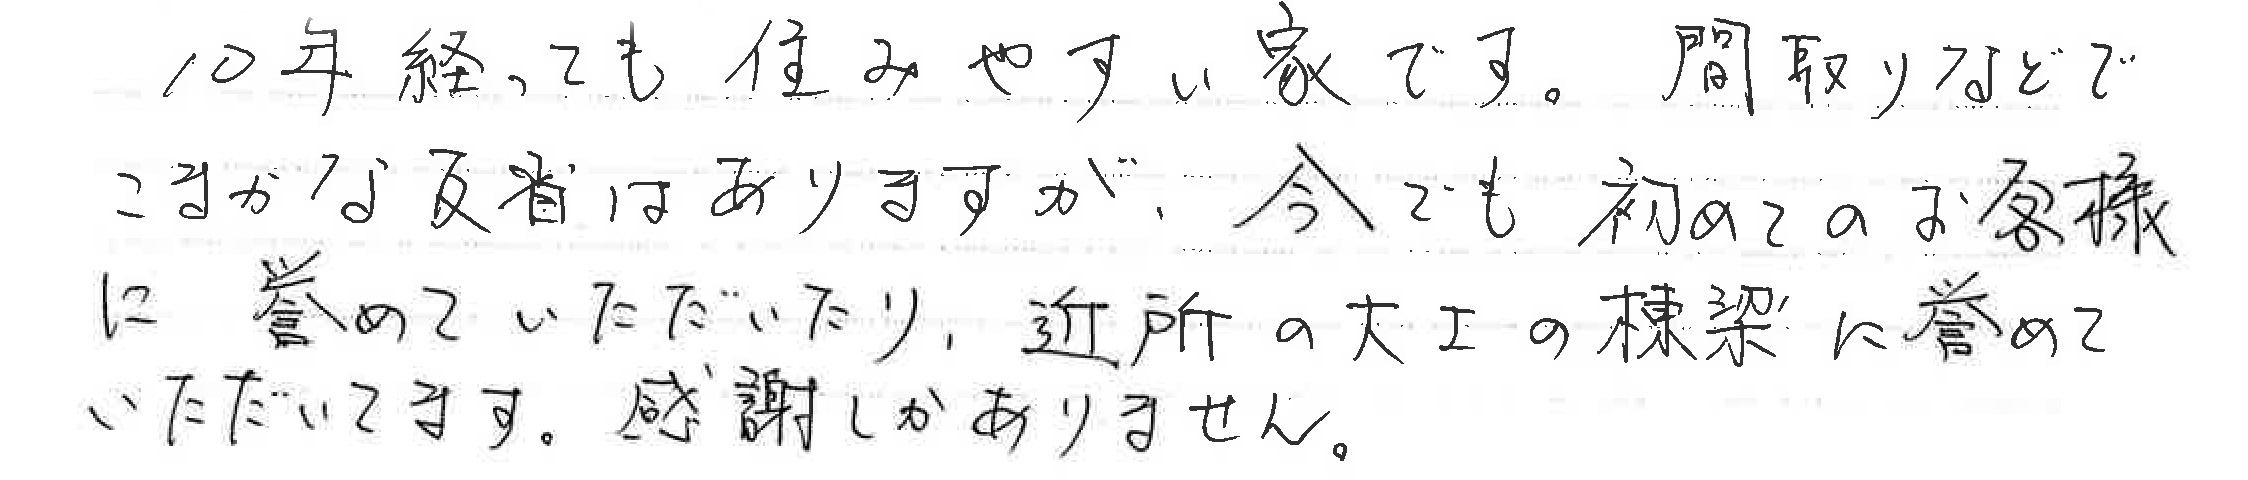 10年経っても住みやすい家です。間取りなどで
こまかな反省はありますが、今でも初めてのお客様
に誉めていただいたり、近所の大工の棟梁に誉めて
いただいてます。感謝しかありません。